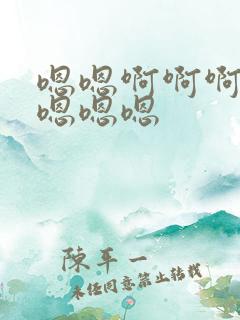 嗯嗯啊啊啊
嗯嗯嗯
陈平一
未经同意禁止转载